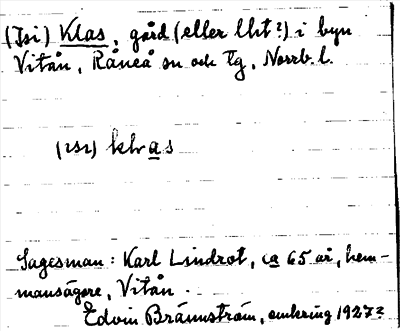 (Isi) Klas, gård (eller lht?) i byn
Vitån, Råneå sn och tg, Norrb. l.
a s
Sagesman: Karl Lindrot, ca 65 år, hem-
mansägare, Vitån.
Edvin Brännström, omkring 1927?